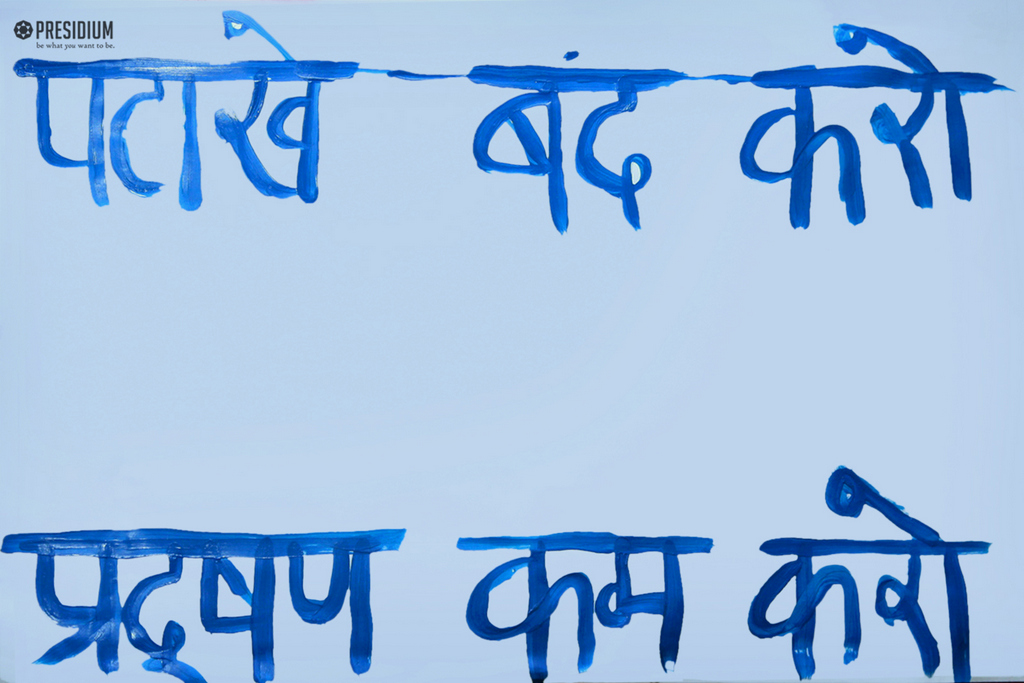 PRESIDIUM
be what you want to be.
पटाखे बंद करो
प्रदूषण कम करो